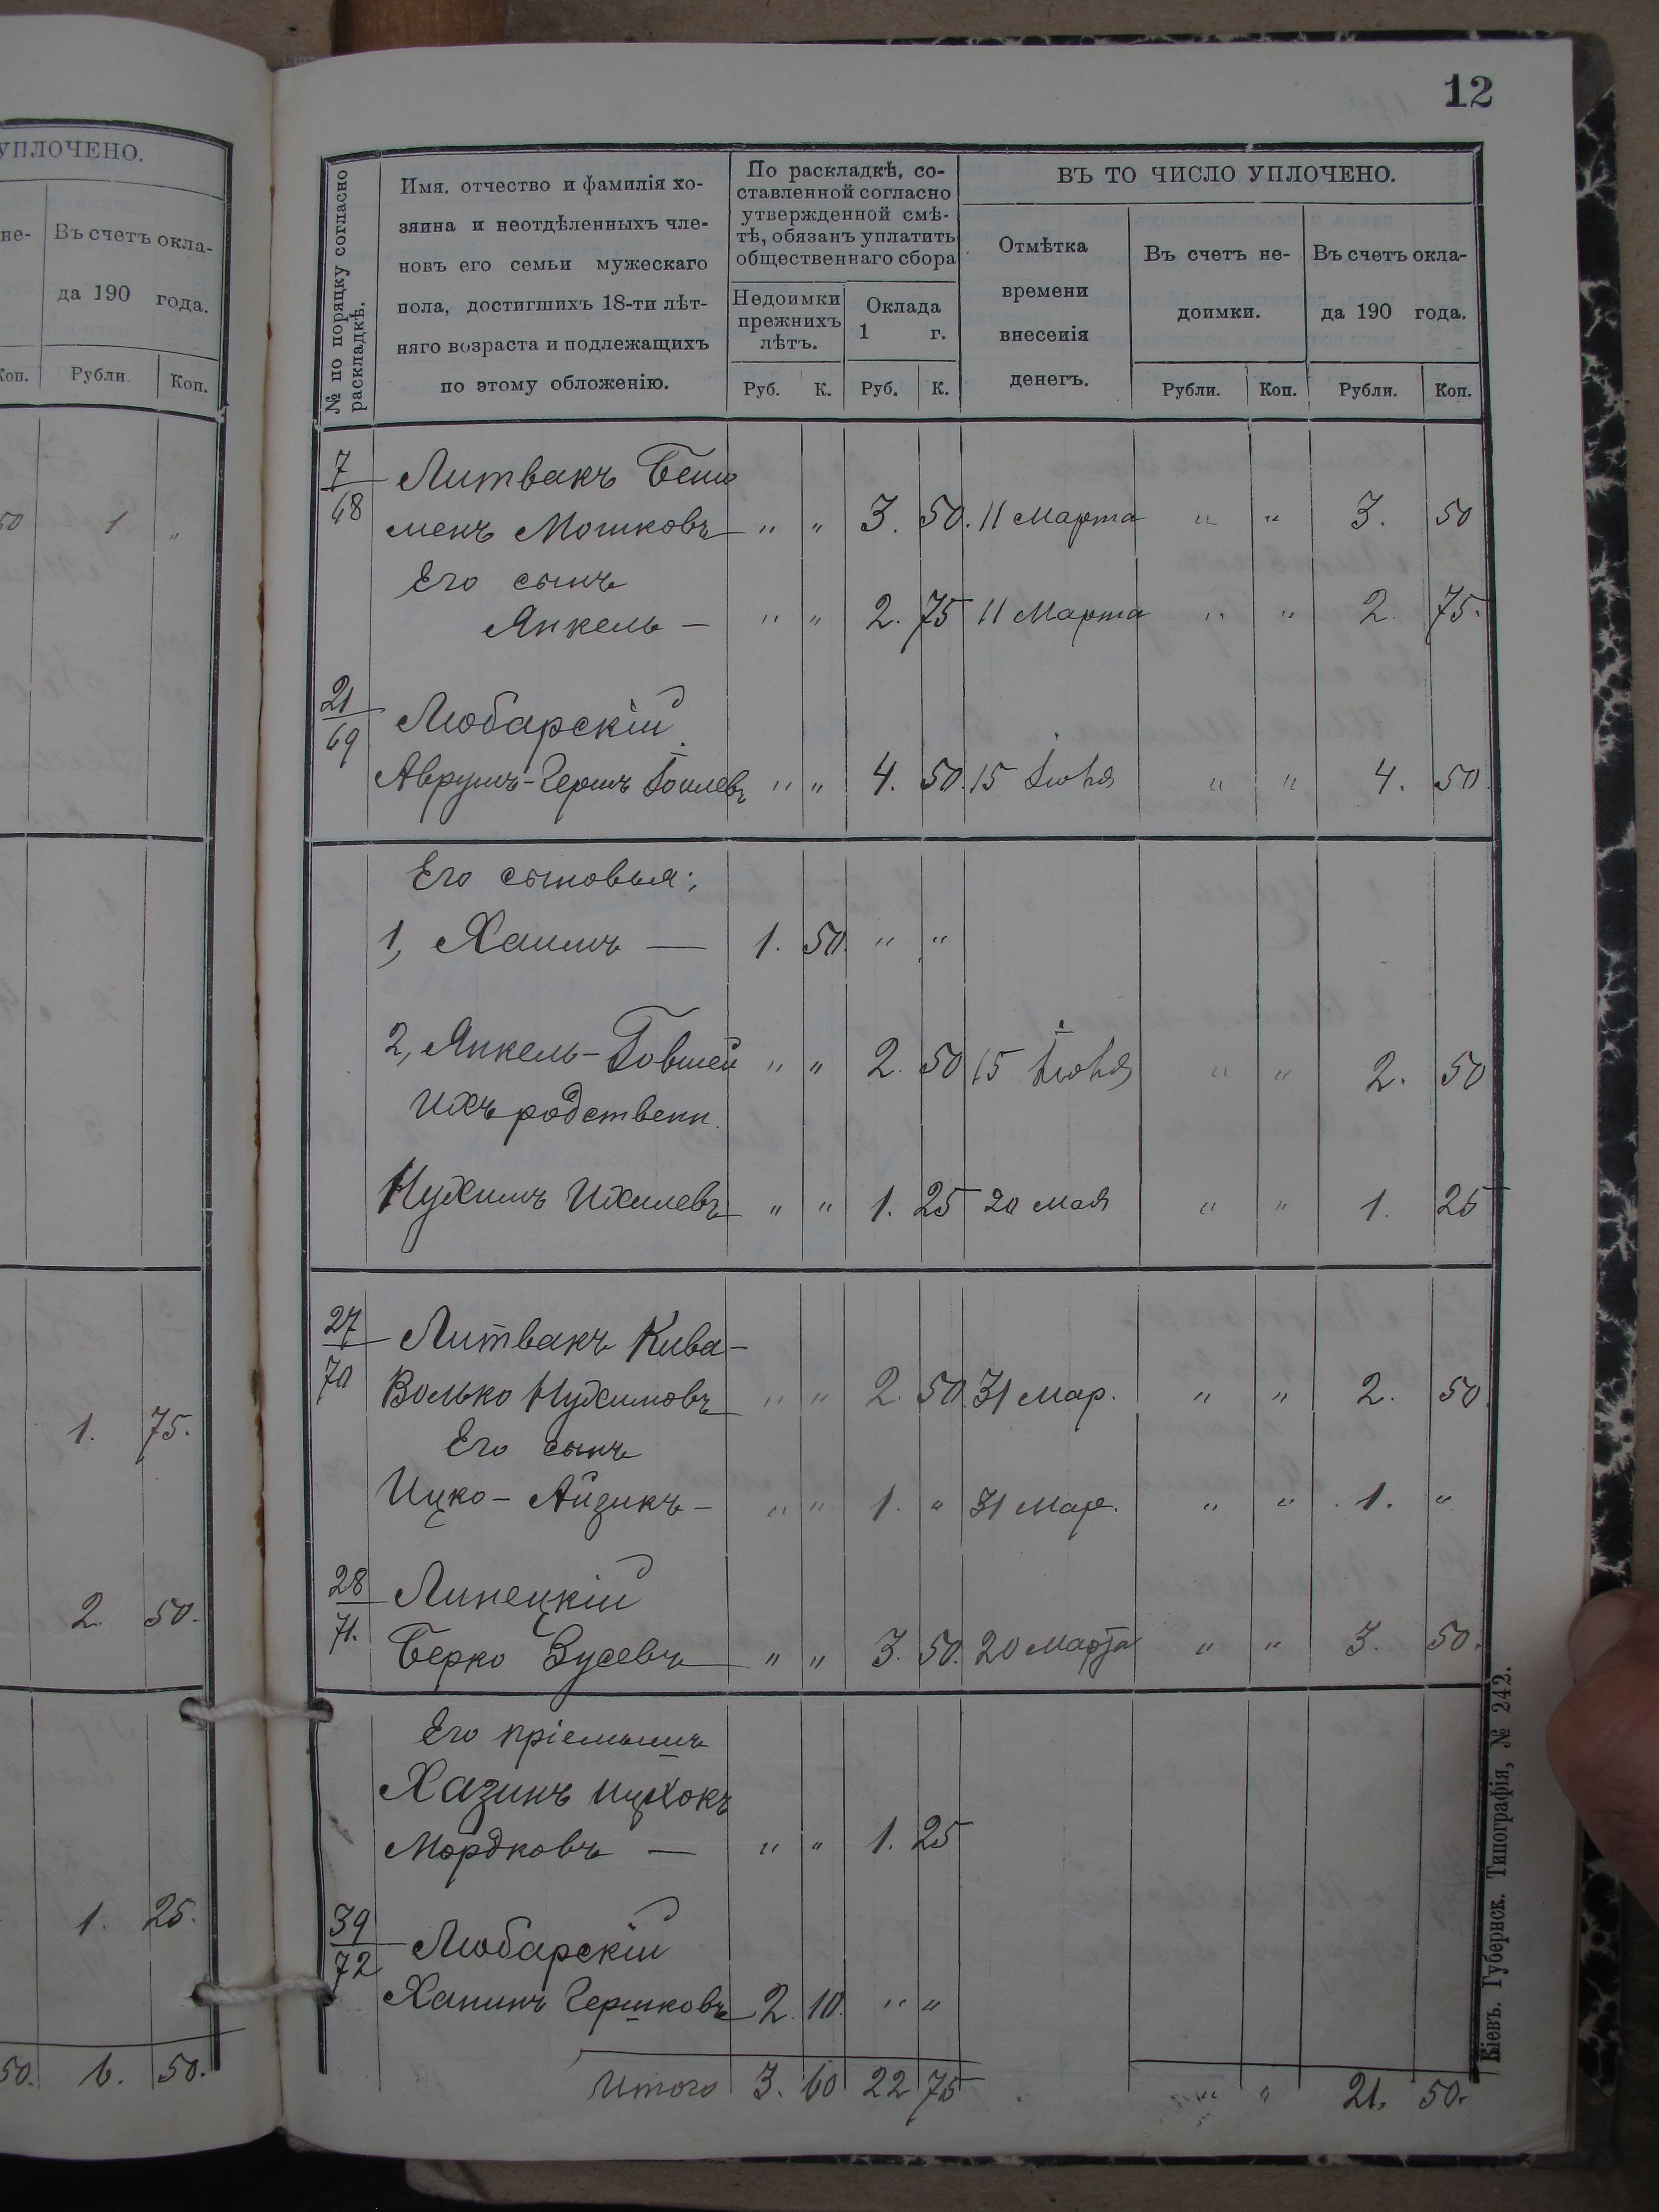 УПЛОЧЕНО.
не-
Въ счетъ окла-
да 190 года.
Коп. Рубли. Коп.
50 1 "
1. 75.
2. 50.
1. 25.
50. 6. 50.
12
№ по порядку согласно
раскладкѣ.
Имя, отчество и фамилія хо-
зяина и неотдѣленныхъ чле-
новъ его семьи мужескаго
пола, достигшихъ 18-ти лѣт-
няго возраста и подлежащихъ
по этому обложенію.
По раскладкѣ, со-
ставленной согласно
утвержденной смѣ-
тѣ, обязанъ уплатить
общественнаго сбора
Недоимки
прежнихъ
лѣтъ.
Оклада
1 г.
Руб. К. Руб. К.
ВЪ ТО ЧИСЛО УПЛОЧЕНО.
Отмѣтка
времени
внесенія
денегъ.
Въ счетъ не-
доимки.
Въ счетъ окла-
да 190 года.
Рубли. Коп. Рубли. Коп.
7/68 Литвакъ
менъ Мошковъ " " 3. 50. 11 Марта " " 3. 50
Его сынъ
Янкель — " " 2. 75 11 Марта " " 2. 75.
21/69 Любарскій
Аврумъ-Гершъ " " 4. 50. 15 " " 4. 50.
Его сыновья:
1, Хаимъ — 1. 50. " "
2, Янкель-Говшей " " 2. 50 15 " " 2. 50
Ихъ родственн.
Нухимъ Ихилевъ " " 1. 25 20 Мая " " 1. 25
27/70 Литвакъ Кива-
Волько Нухимовъ " " 2. 50. 31 Мар. " " 2. 50.
Его сынъ
Ицко-Айзикъ- " " 1. " 31 Мар. " " 1. "
28/71. Липецкій
Берко Зусевъ " " 3. 50. 20 Марта " " 3. 50.
Его пріемышъ
Хазинъ Ицхокъ
Мордковъ — " " 1. 25
39/72 Любарскій
Ханинъ Гершковъ 2. 10. " "
Итого 3. 60 22 75 " 21. 50.
Кіевъ. Губернск. Типографія, № 242.